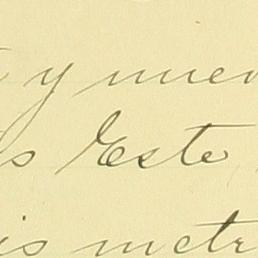 y nuev
s Este
is metr